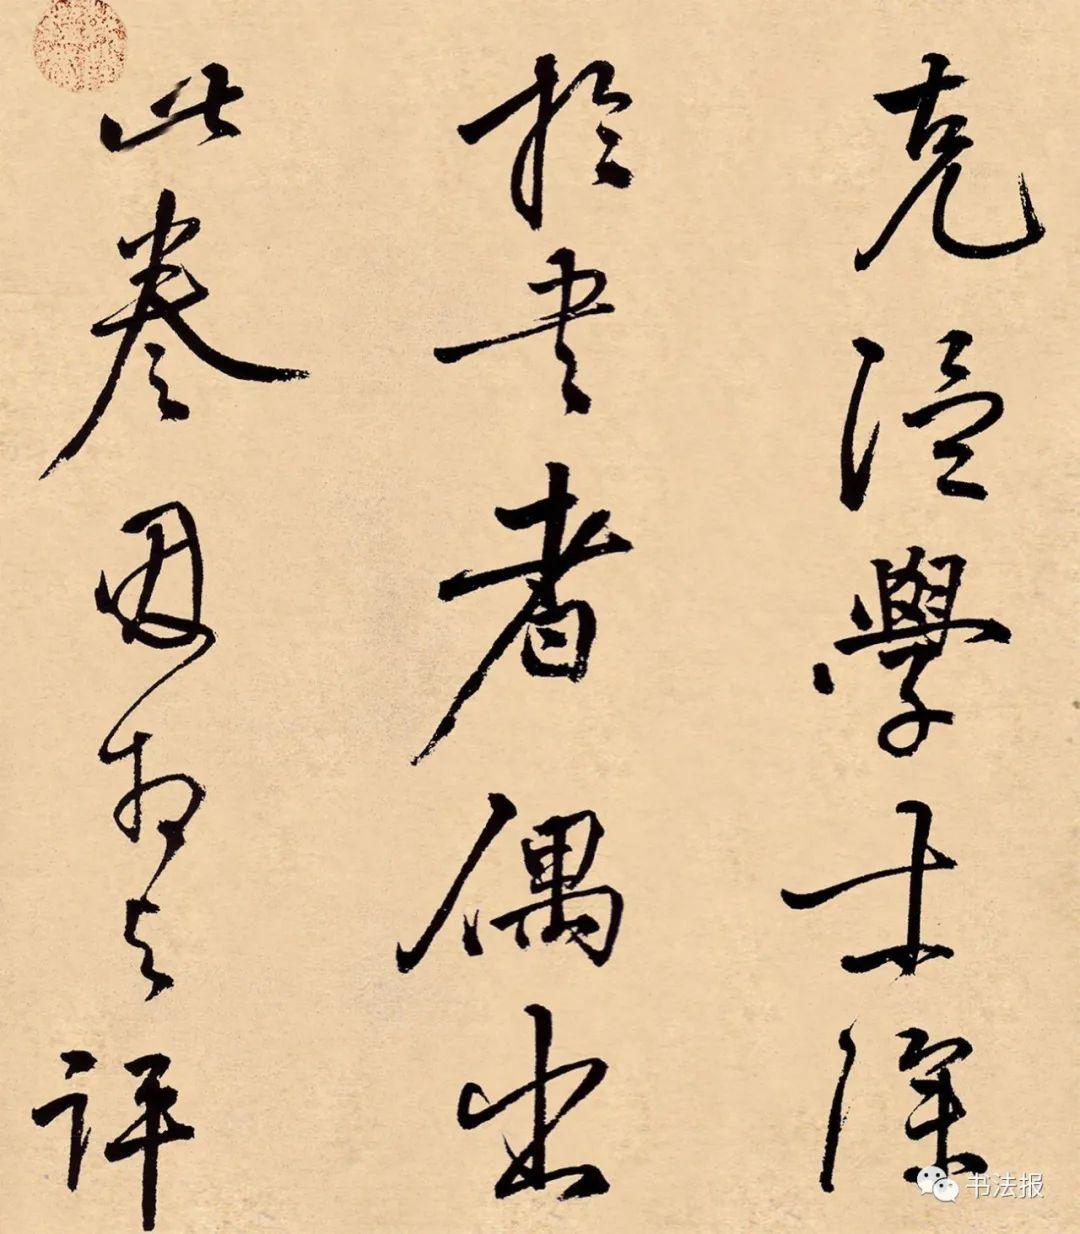 克温學士深
於書者偶出
此卷因相與評
书法报